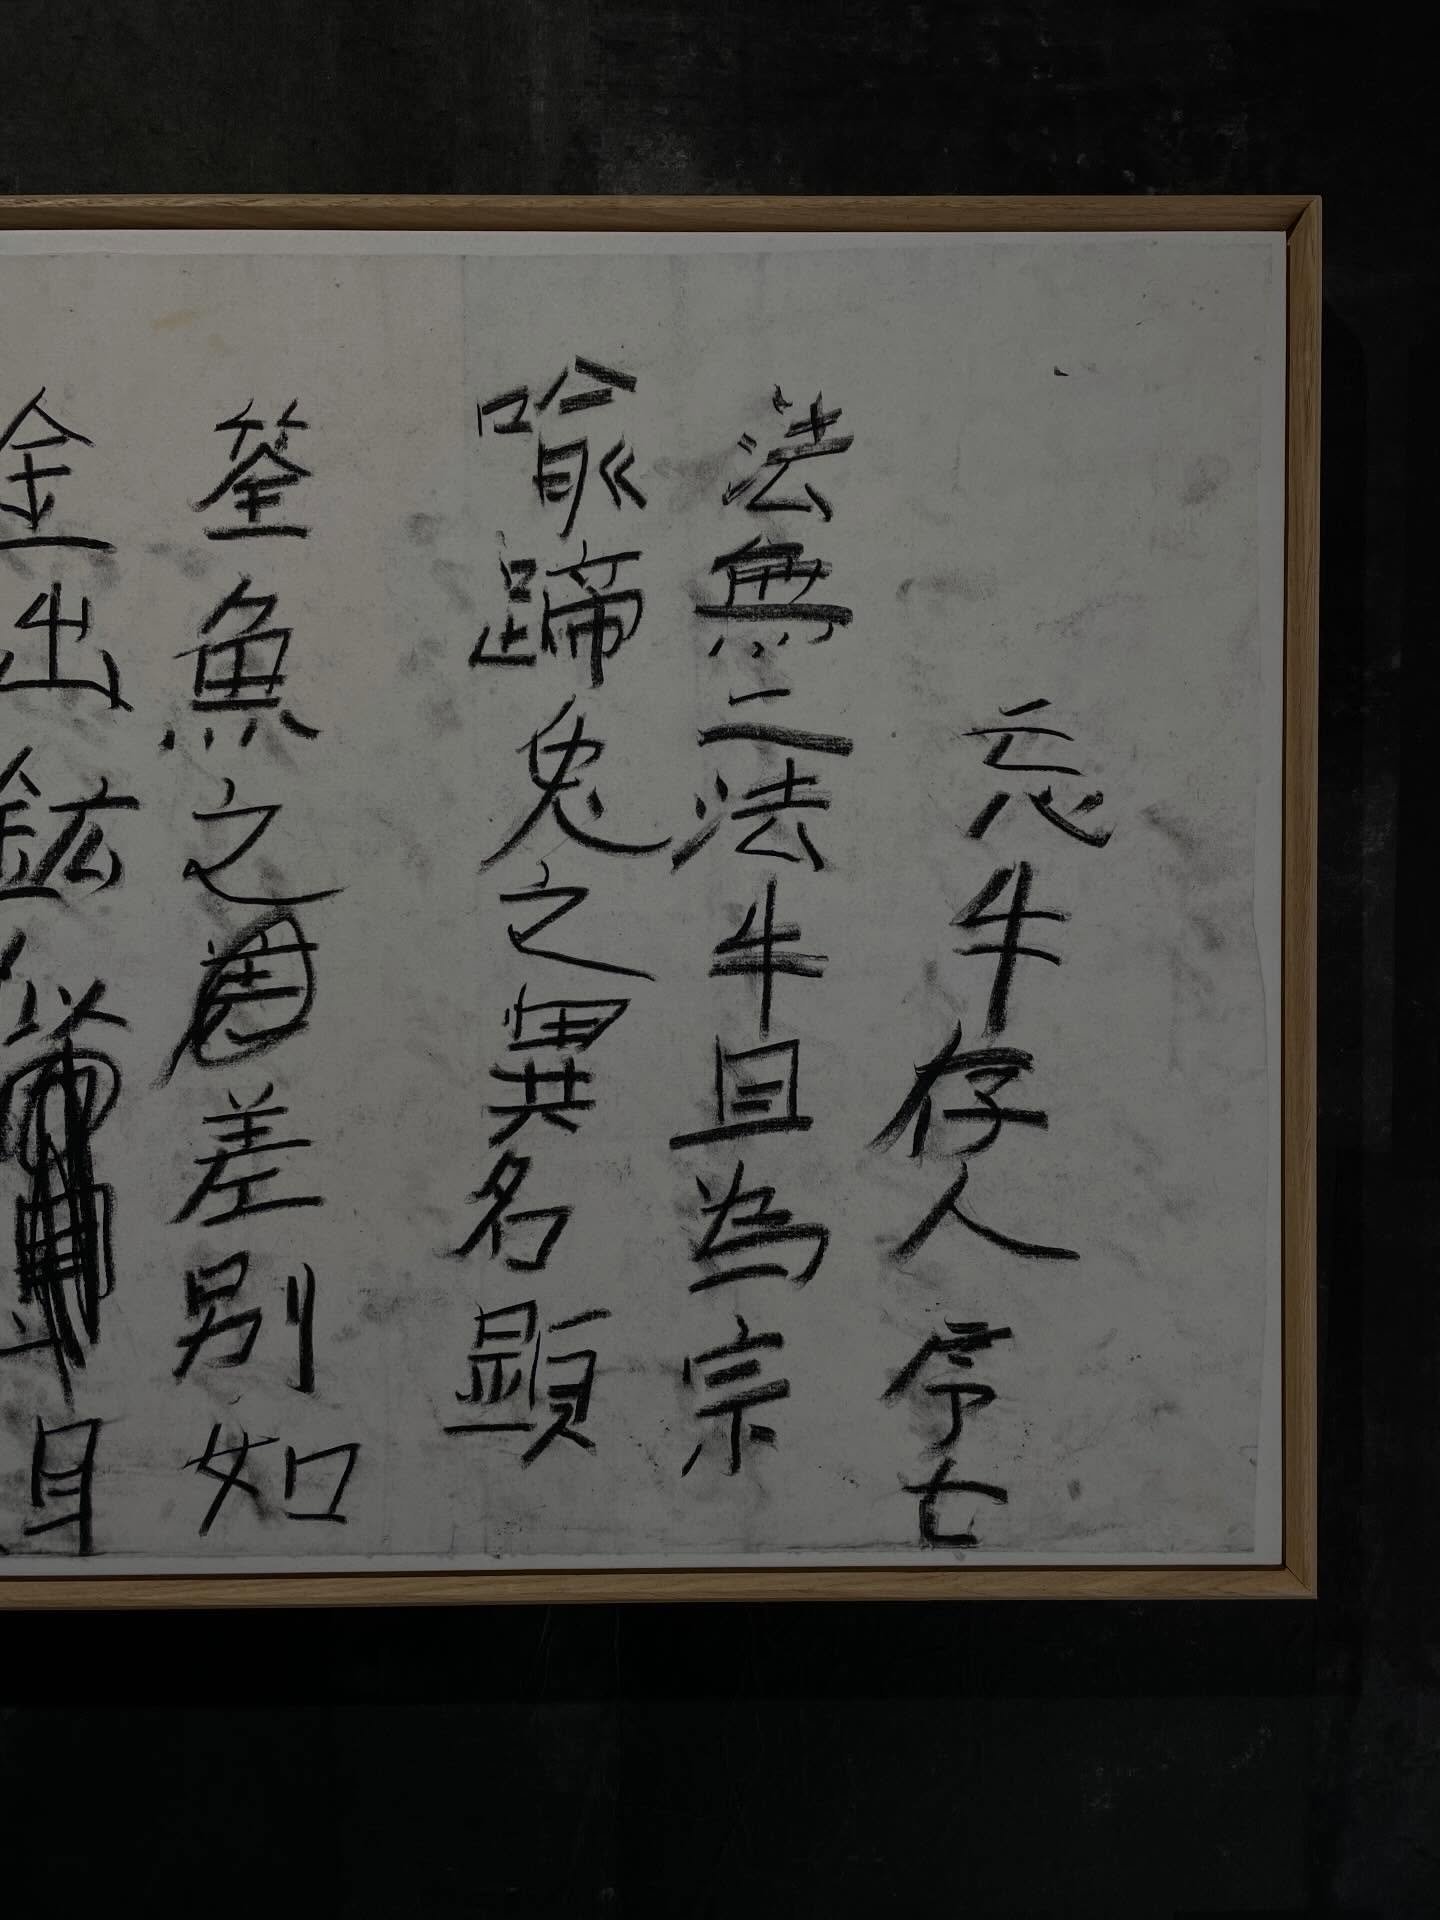 忘牛存人序七
法無二法牛且為宗
喻蹄兔之異名顯
筌魚之差別如
金出鉱似